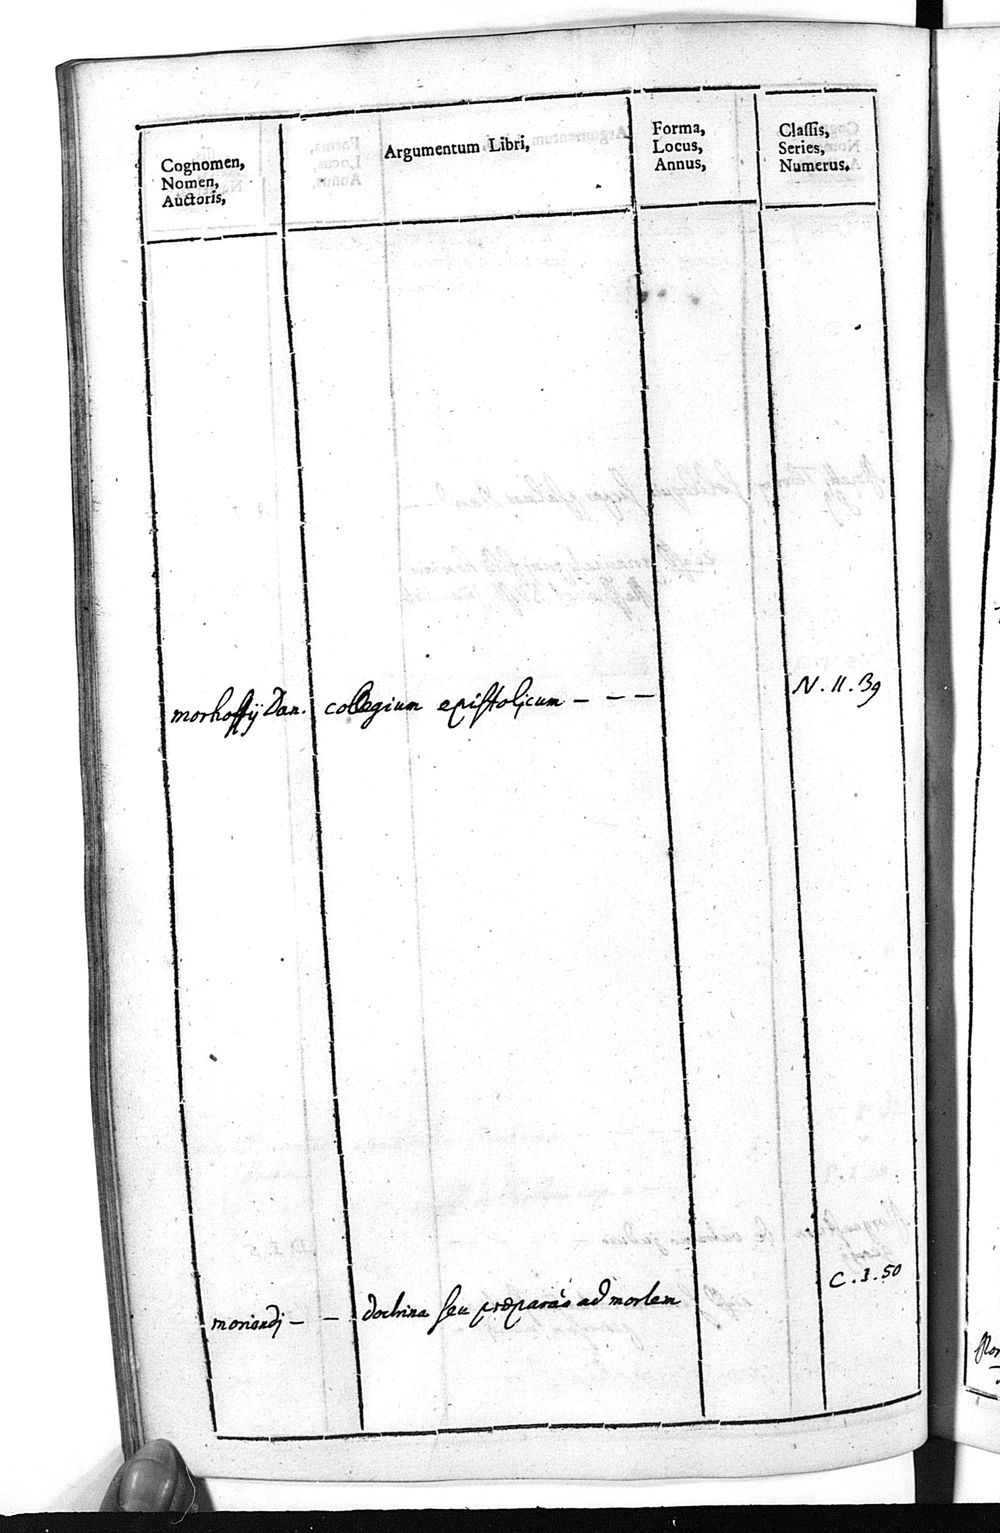 Cognomen,
Nomen,
Auctoris,
Argumentum Libri,
Forma,
Locus,
Annus,
Classis,
Series,
Numerus.
morhoffij Dan. collegium epistolicum - - - N. II. 39
moriendj - - doctrina seu præparaō ad mortem C. I. 50